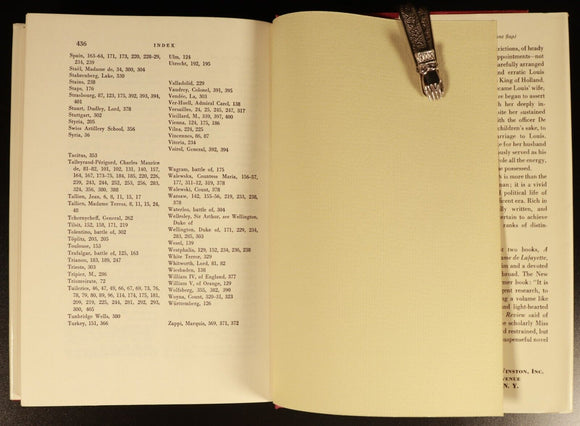 436 INDEX
Spain, 163-64, 171, 173, 220, 228-29,
234, 239
Staël, Madame de, 34, 300, 304
Stahrenberg, Lake, 330
Staies, 238
Staps, 176
Strasbourg, 87, 123, 175, 392, 393, 394,
401
Stuart, Dudley, Lord, 378
Stuttgart, 302
Syria, 205
Swiss Artillery School, 356
Syria, 36
Tacitus, 353
Talleyrand-Périgord, Charles Maurice
de, 81-82, 101, 102, 131, 140, 157,
164, 167, 173-75, 184, 185, 220, 226,
239, 243, 244, 252, 253, 256, 283,
324, 356, 380, 388
Tallien, Jean, 4, 8, 11, 15, 17
Tallien, Madame Teresa, 8, 11, 15, 24,
40
Tchernycheff, General, 262
Tilsit, 152, 158, 171, 219
Tolentino, battle of, 302
Töplitz, 203, 205
Toulouse, 153
Trafalgar, battle of, 125, 163
Trianon, 183, 189, 247
Trieste, 303
Tripier, M., 286
Triumvirate, 72
Tuileries, 46, 47, 49, 66, 67, 69, 73, 76,
78, 79, 80, 89, 96, 114, 174, 175, 181,
209, 219, 225, 244, 281, 292, 293,
300, 405
Tunbridge Wells, 380
Turkey, 151, 366
Ulm, 124
Utrecht, 192, 195
Valladolid, 229
Vaudrey, Colonel, 391, 395
Vendée, La, 303
Ver-Huell, Admiral Carel, 138
Versailles, 24, 25, 245, 247, 317
Vieillard, M., 339, 397, 400
Vienna, 124, 175, 186
Vilna, 224, 225
Vincennes, 86, 87
Vitoria, 234
Voirol, General, 392, 394
Wagram, battle of, 175
Walewska, Countess Maria, 156-57,
177, 311-12, 319, 378
Walewski, Count, 378
Warsaw, 142, 155-56, 219, 253, 258,
378
Waterloo, battle of, 304
Wellesley, Sir Arthur, see Wellington,
Duke of
Wellington, Duke of, 171, 229, 234,
283, 285, 303
Wesel, 139
Westphalia, 129, 152, 234, 236, 238
White Terror, 329
Whitworth, Lord, 81, 82
Wiesbaden, 138
William IV, of England, 377
William V, of Orange, 129
Wolfsberg, 355, 382, 390
Woyna, Count, 329-31, 333
Württemberg, 126
Zappi, Marquis, 369, 371, 372
ont flap)
rictions, of heady
appointments—not
arefully arranged
and erratic Louis
King of Holland.
came Louis' wife,
rs began to assert
h her deeply in-
ite her sustained
with the officer De
children's sake, to
arriage to Louis
for her husband
ously served as his
ole all the energy,
e possessed.
is more than the
man; it is a vivid
d political life of
cent era. Rich in
ly written, and
ertain to achieve
ranks of distin-
st two books, A
ame de Lafayette,
im and a devoted
abroad. The New
rmer book: "It is
gent research, to
ng a volume like
and light-hearted
Review said of
e scholarly Miss
d restrained, but
uspenseful novel
WINSTON, INC.
VENUE
N. Y.